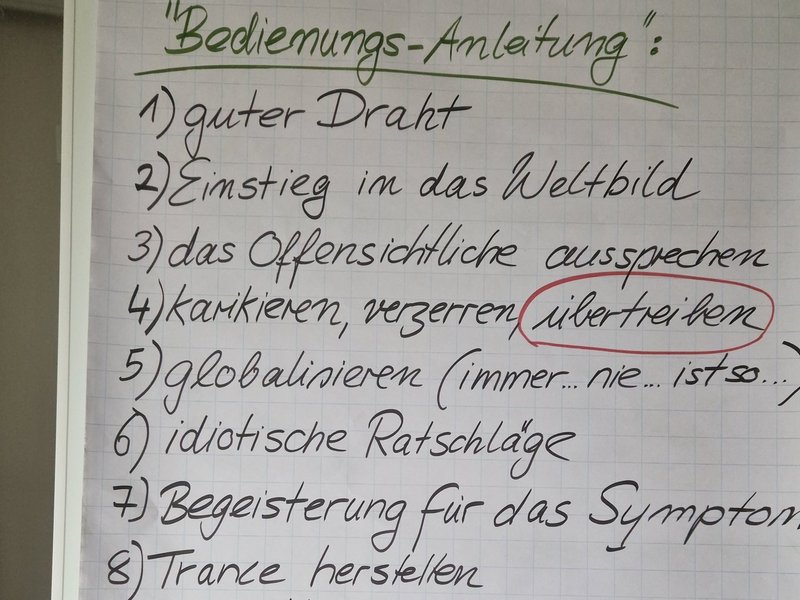 "Bedienungs-Anleitung":
1) guter Draht
2) Einstieg in das Weltbild
3) das Offensichtliche aussprechen
4) karikieren, verzerren, übertreiben
5) globalisieren (immer... nie... ist so...)
6) idiotische Ratschläge
7) Begeisterung für das Symptom
8) Trance herstellen